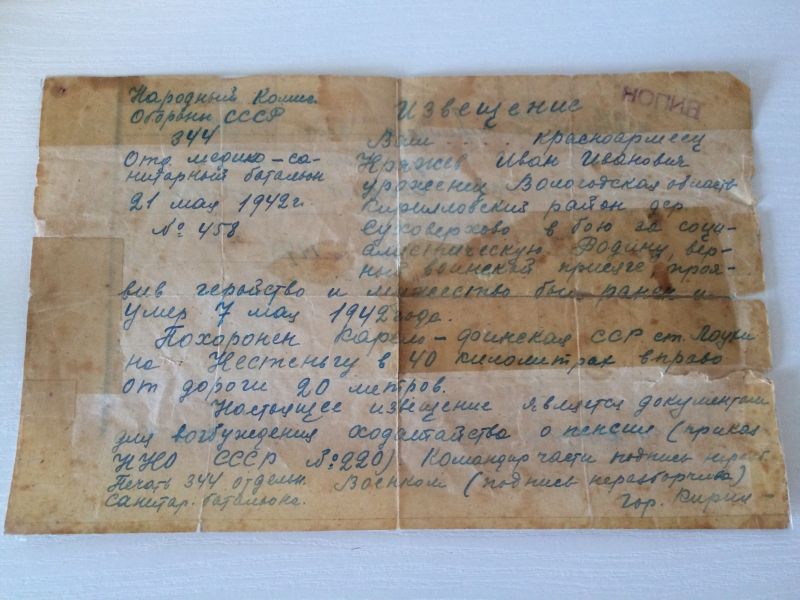 Народный Комис.
Обороны СССР
344
Отд. медико-са-
нитарный батальон
21 мая 1942 г.
№ 458
КОПИЯ
Извещение
Ваш .... красноармеец
Иван Иванович
уроженец Вологодская область
Кирилловский район дер
Суховерхово в бою за соци-
алистическую Родину, вер-
ный воинской присяге, проя-
вив геройство и мужество был ранен и
умер 7 мая 1942 года.
Похоронен Карело-финская ССР ст. Лоухи
на Нестеньгу в 40 километрах вправо
от дороги 20 метров.
Настоящее извещение является документом
для возбуждения ходатайства о пенсии (приказ
НКО СССР №: 220) Командир части подпись нераз
Печать 344 отдельн. Военком (подпись неразборчива)
санитар. батальона. гор. Кирил-